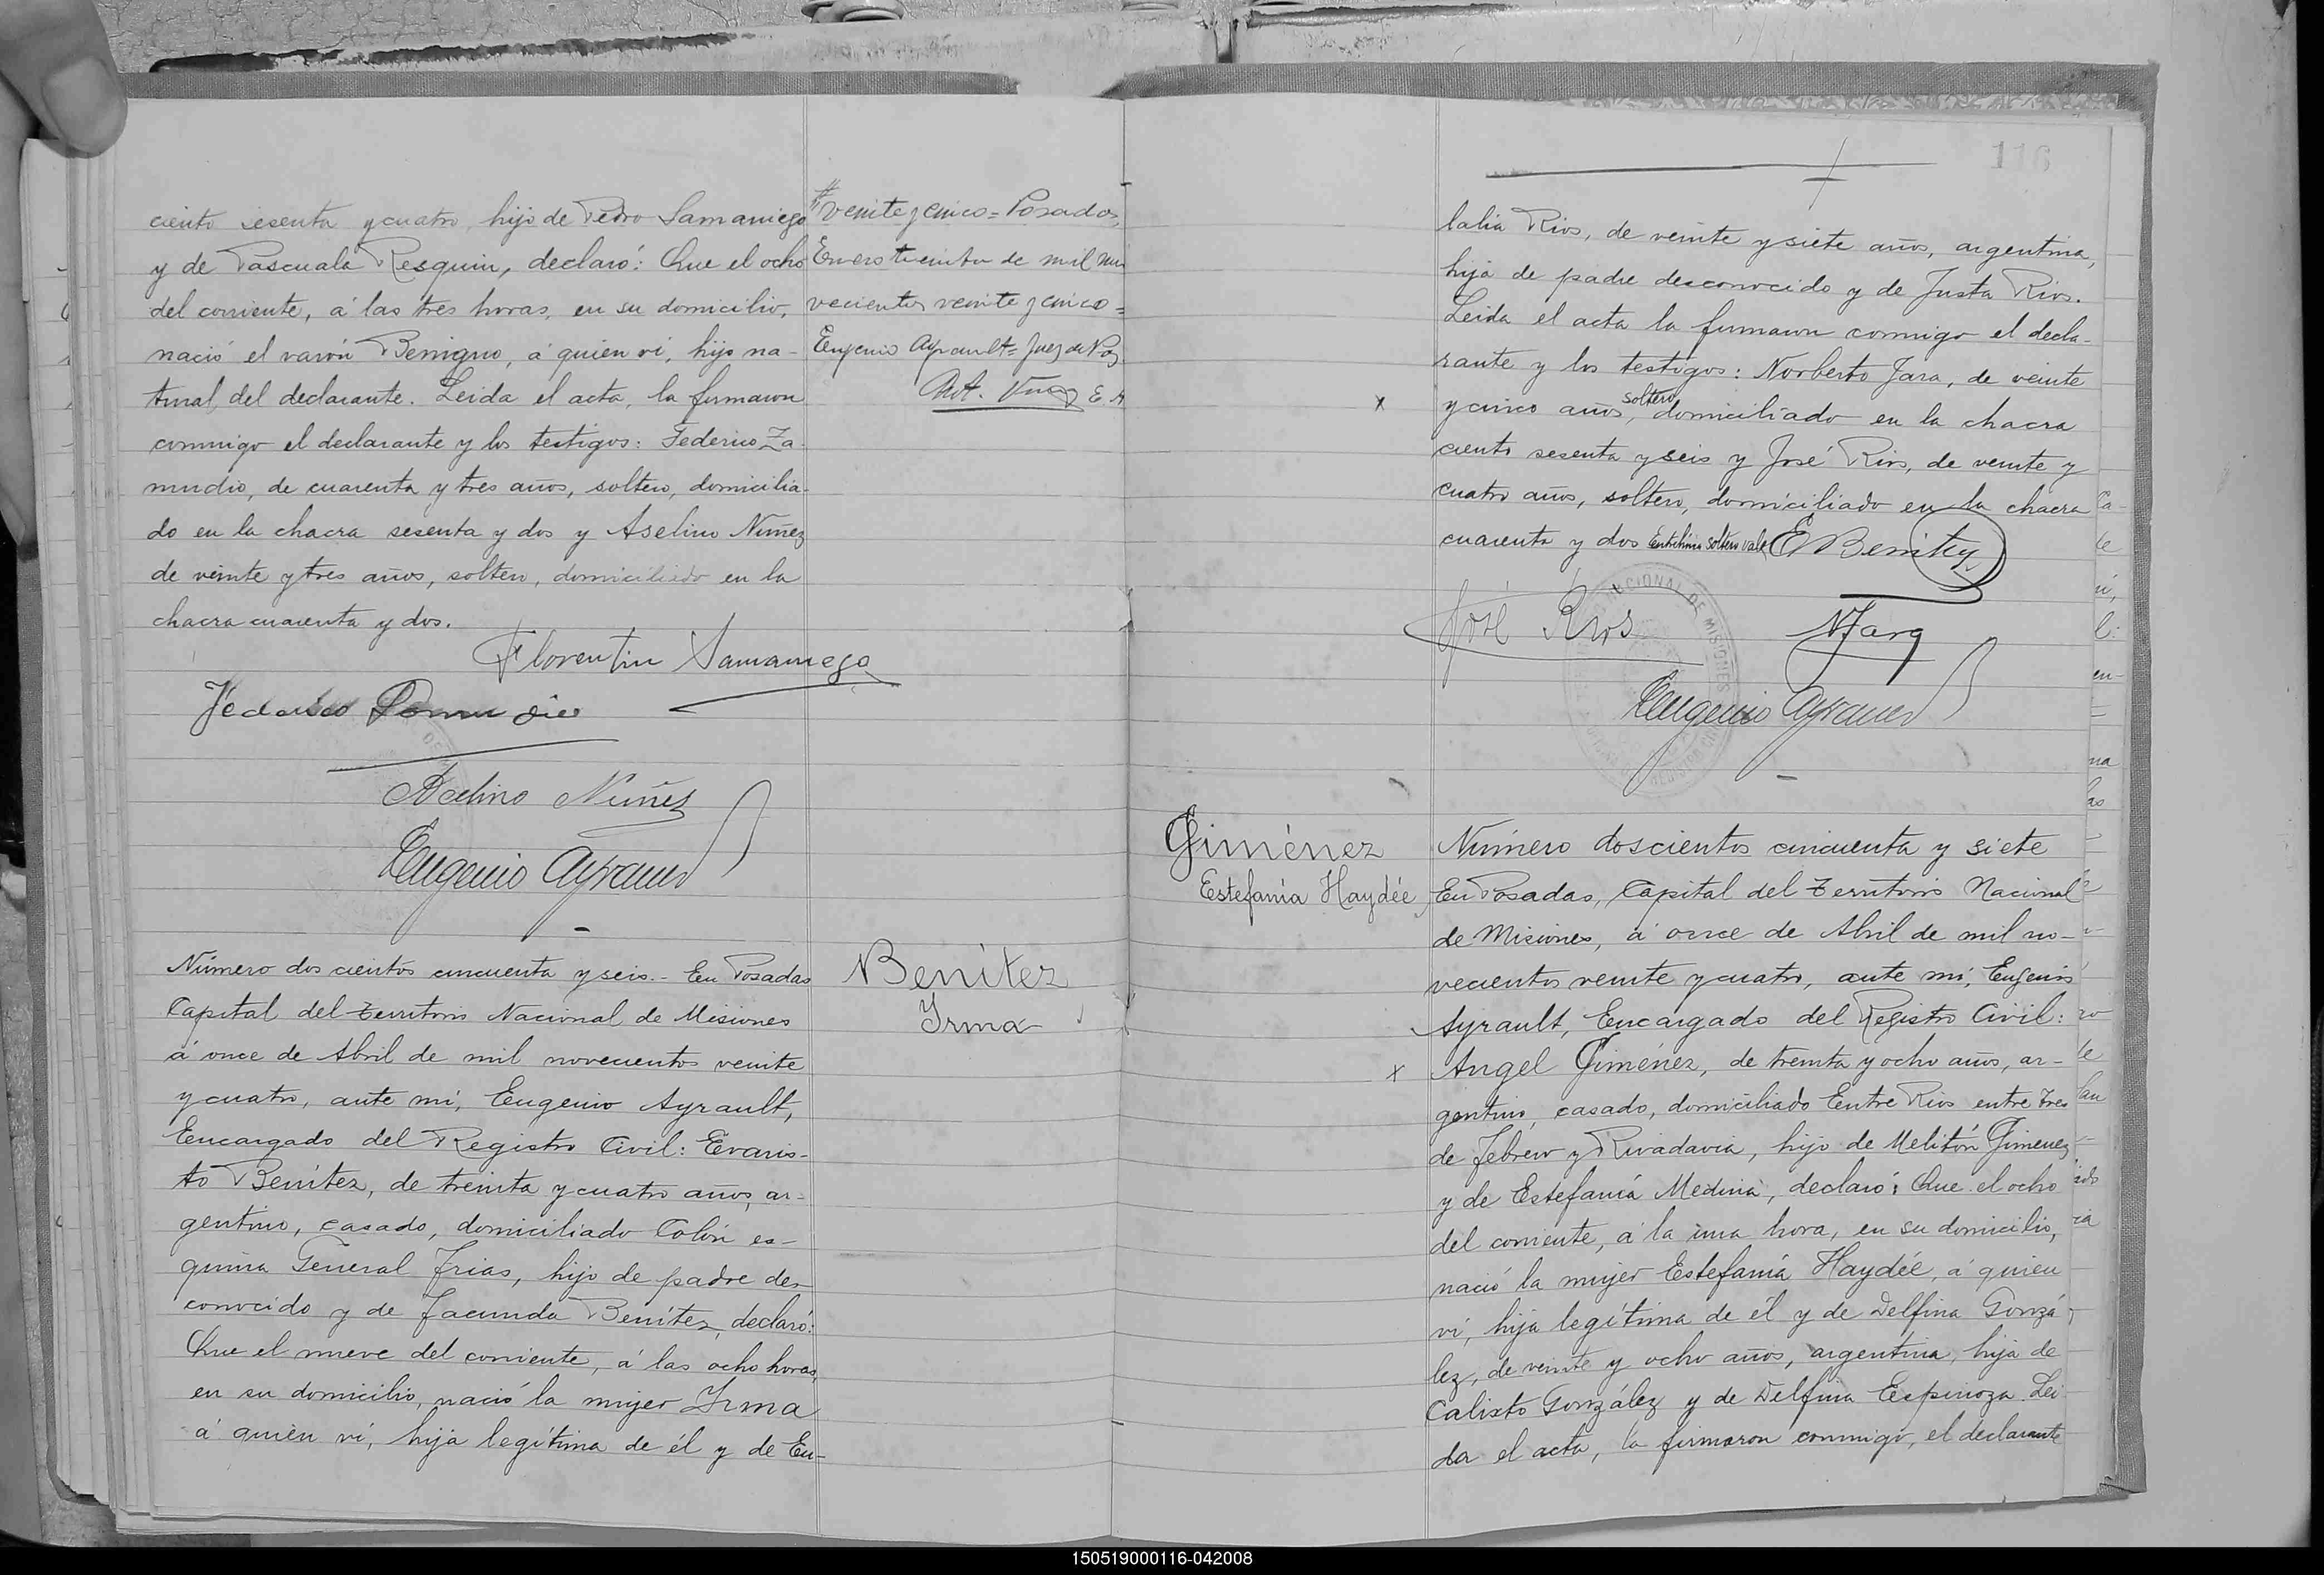 ciento sesenta y cuatro, hijo de Pedro Samaniego
y de Pascuala Resquin, declaró: Que el ocho
del corriente, á las tres horas, en su domicilio,
nació el varón Benigno, á quien ví, hijo na-
tural, del declarante. Leida el acta, la firmaron
conmigo el declarante y los testigos: Federico Za-
mudio, de cuarenta y tres años, soltero, domicilia-
do en la chacra sesenta y dos y Aselino Nuñez
de veinte y tres años, soltero, domiciliado en la
chacra cuarenta y dos.
Florentin Samaniego
Federico
Acelino Núñez
Eugenio Ayrault
veinte y cinco = Posadas,
Enero treinta de mil no
vecientos veinte y cinco =
Eugenio Ayrault = Juez de Paz
E. A
Número dos cientos cincuenta y seis.- En Posadas
Capital del Territorio Nacional de Misiones
á once de Abril de mil novecientos veinte
y cuatro, ante mí, Eugenio Ayrault,
Encargado del Registro Civil: Evaris-
to Benítez, de treinta y cuatro años, ar-
gentino, casado, domiciliado Colón es-
quina General Frias, hijo de padre des-
conocido y de Facunda Benítez, declaró:
Que el nueve del corriente, á las ocho horas,
en su domicilio, nació la mujer Irma
á quien ví, hija legítima de él y de Eu-
Benítez
Irma
116
lalia Rios, de veinte y siete años, argentina,
hija de padre desconocido y de Justa Rios.
Leida el acta la firmaron conmigo el decla-
rante y los testigos: Norberto Jara, de veinte
soltero
x y cinco años, domiciliado en la chacra
ciento sesenta y seis y José Rios, de veinte y
cuatro años, soltero, domiciliado en la chacra
cuarenta y dos Entrelíneas soltero vale E Benitez
José Rios N Jara
Eugenio Ayrault
NACIONAL DE MISIONES
Giménez
Estefanía Haydée
Número doscientos cincuenta y siete
En Posadas, Capital del Territorio Nacional
de Misiones, á once de Abril de mil no-
vecientos veinte y cuatro, ante mí, Eugenio
Ayrault, Encargado del Registro Civil:
x Angel Giménez, de treinta y ocho años, ar-
gentino, casado, domiciliado Entre Rios entre Tres
de Febrero y Rivadavia, hijo de Melitón Gimenez
y de Estefanía Medina, declaró: Que el ocho
del corriente, á la una hora, en su domicilio,
nació la mujer Estefanía Haydée, á quien
ví, hija legítima de él y de Delfina Gonzá
lez, de veinte y ocho años, argentina, hija de
Calixto González y de Delfina Espinoza. Lei
da el acta, la firmaron conmigo, el declarante
150519000116-042008